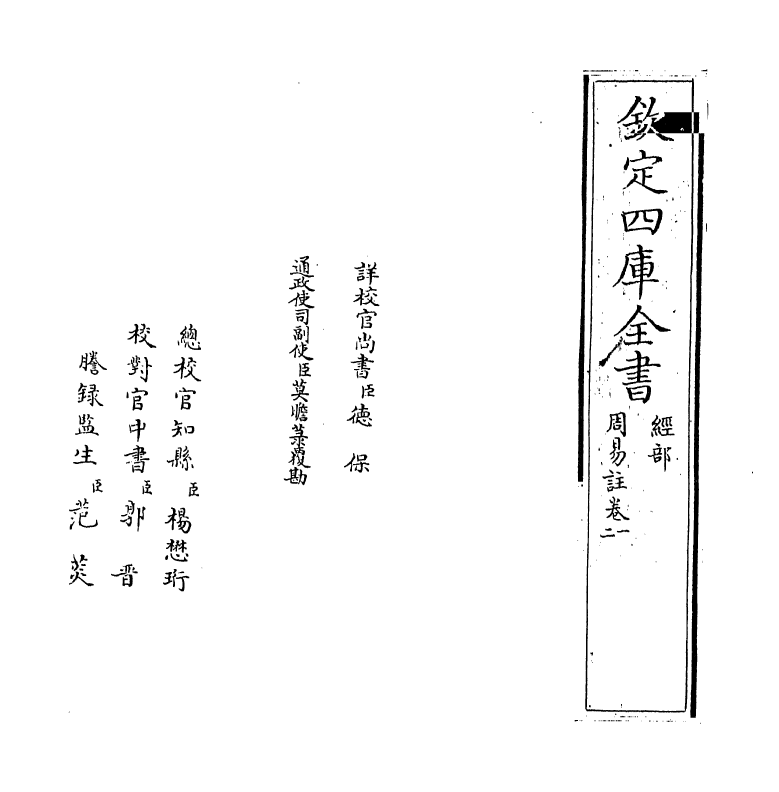 欽定四庫全書
經部
周易註卷一二
詳校官尚書臣德保
通政使司副使臣莫瞻菉覆勘
總校官知縣臣楊懋珩
校對官中書臣郭晋
謄録監生臣范葵